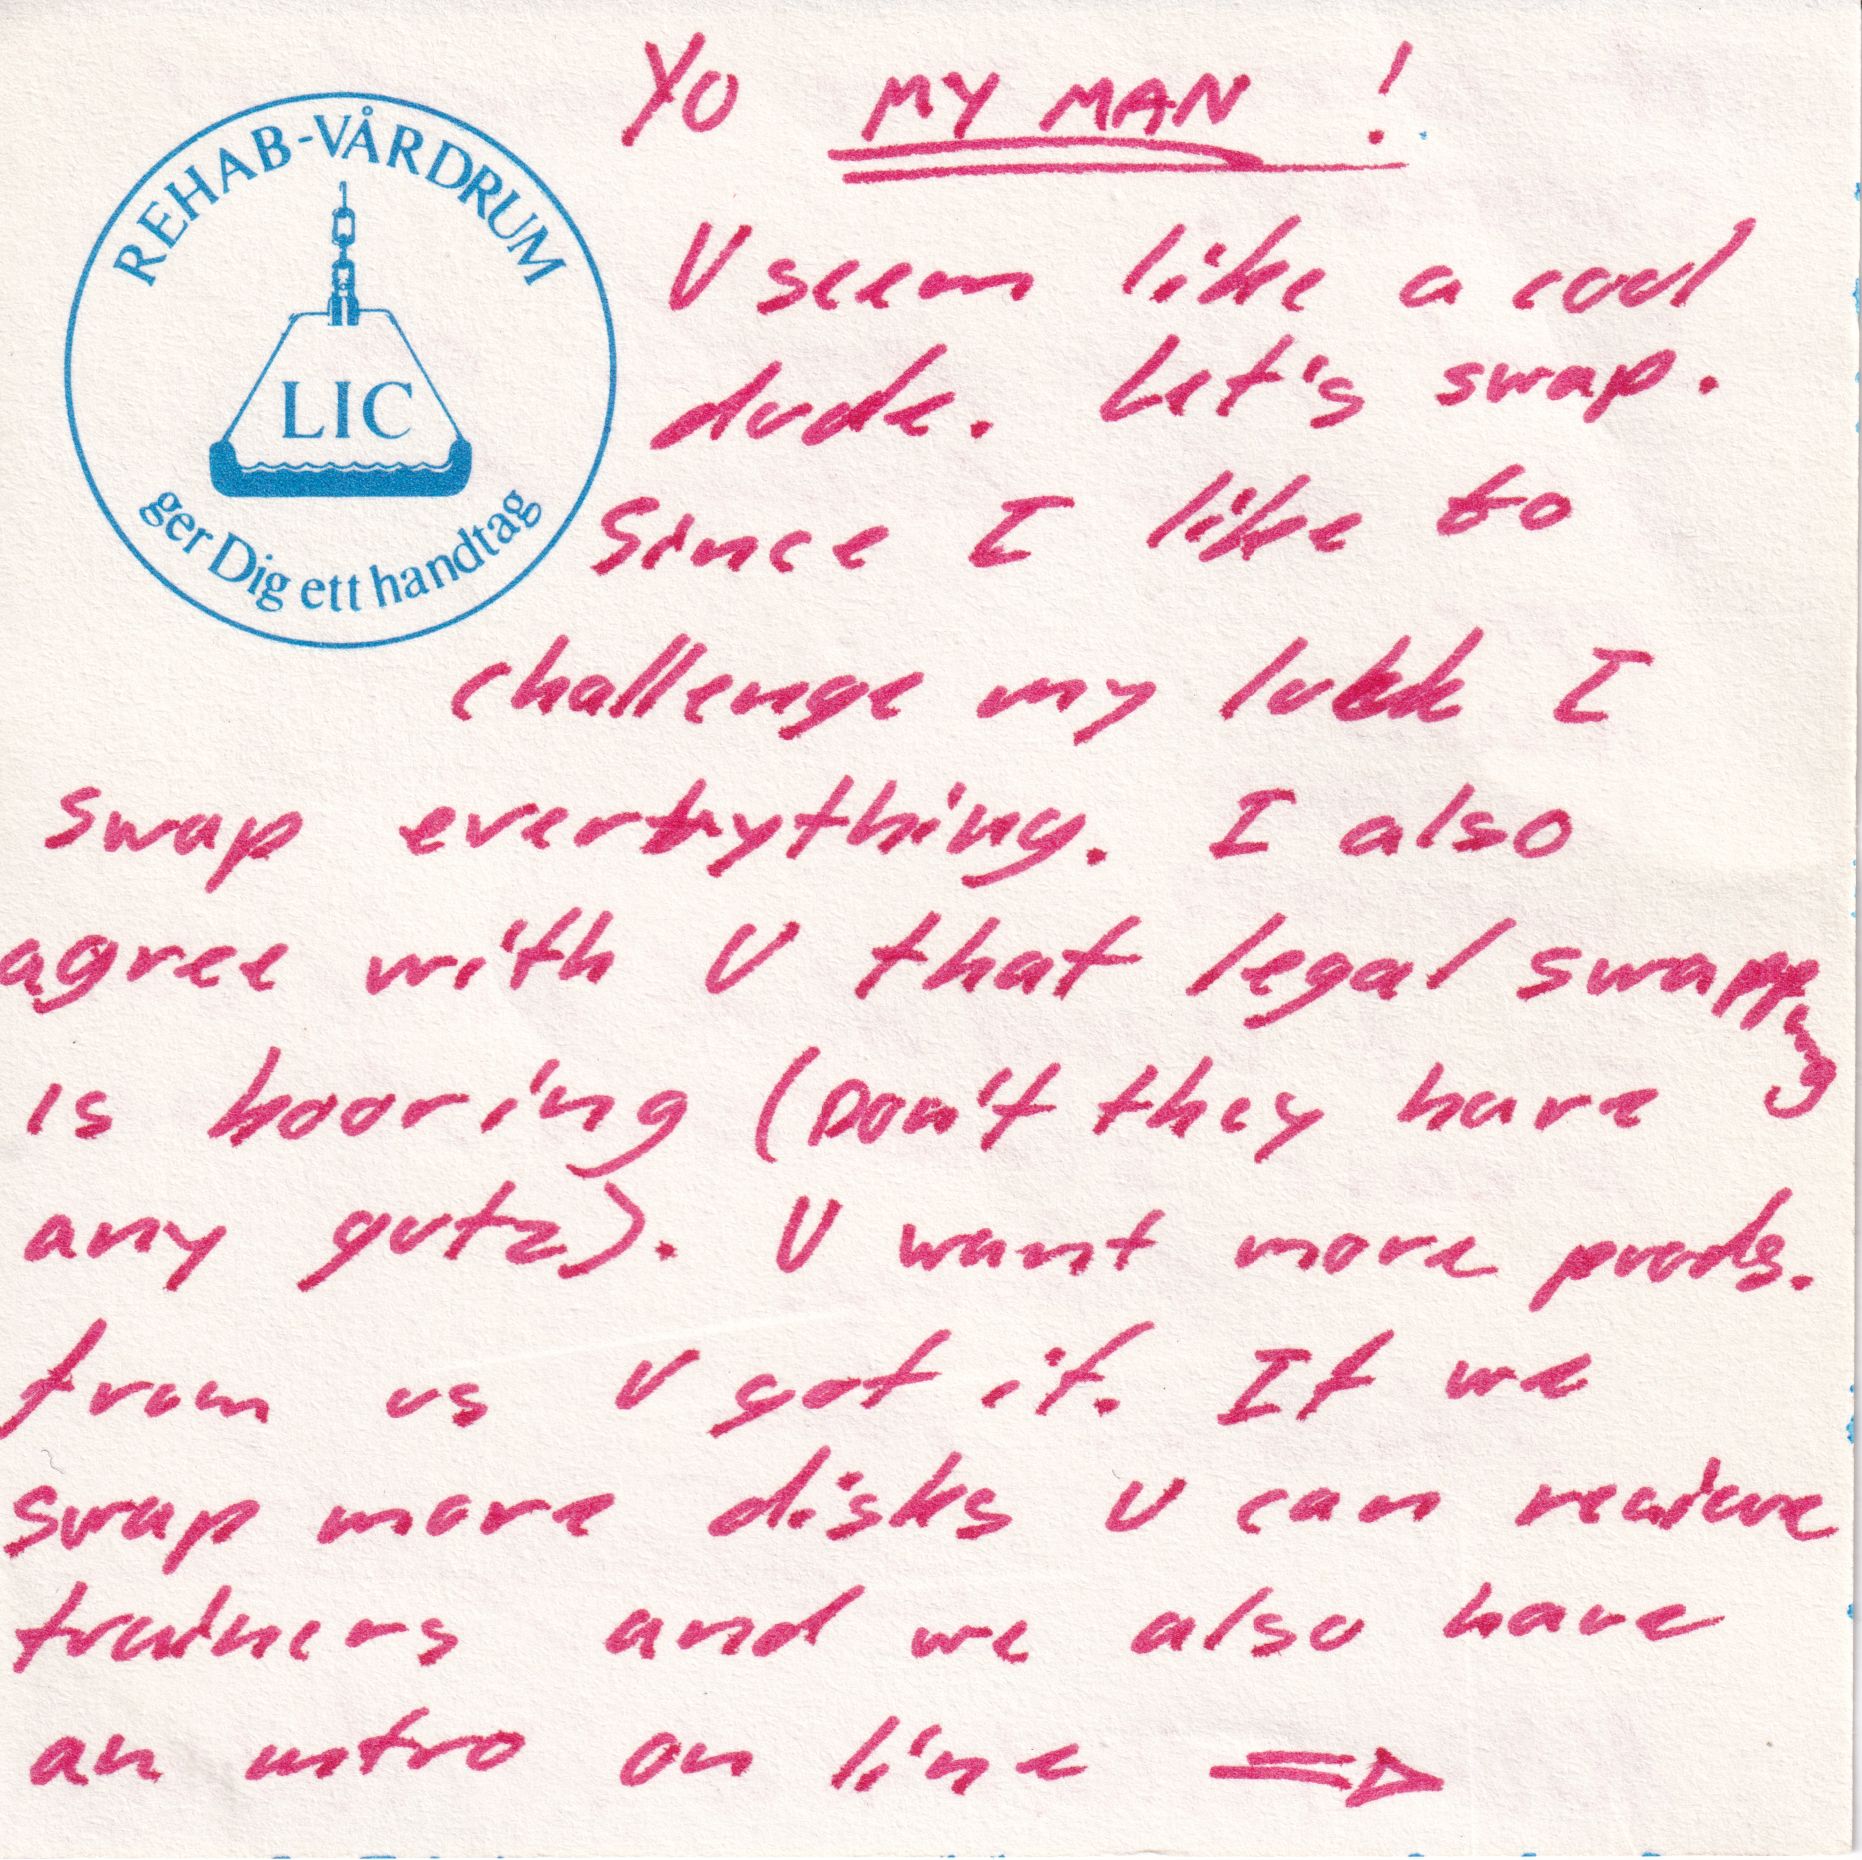 REHAB-VÅRDRUM
LIC
ger Dig ett handtag
YO MY MAN !
U seem like a cool
dude. Let's swap.
Since I like to
challenge my lukk I
swap everbything. I also
agree with U that legal swapping
is booring (Don't they have
any gutz). U want more prods.
from us U got it. If we
swap more disks U can recieve
trainers and we also have
an intro on line ⇒